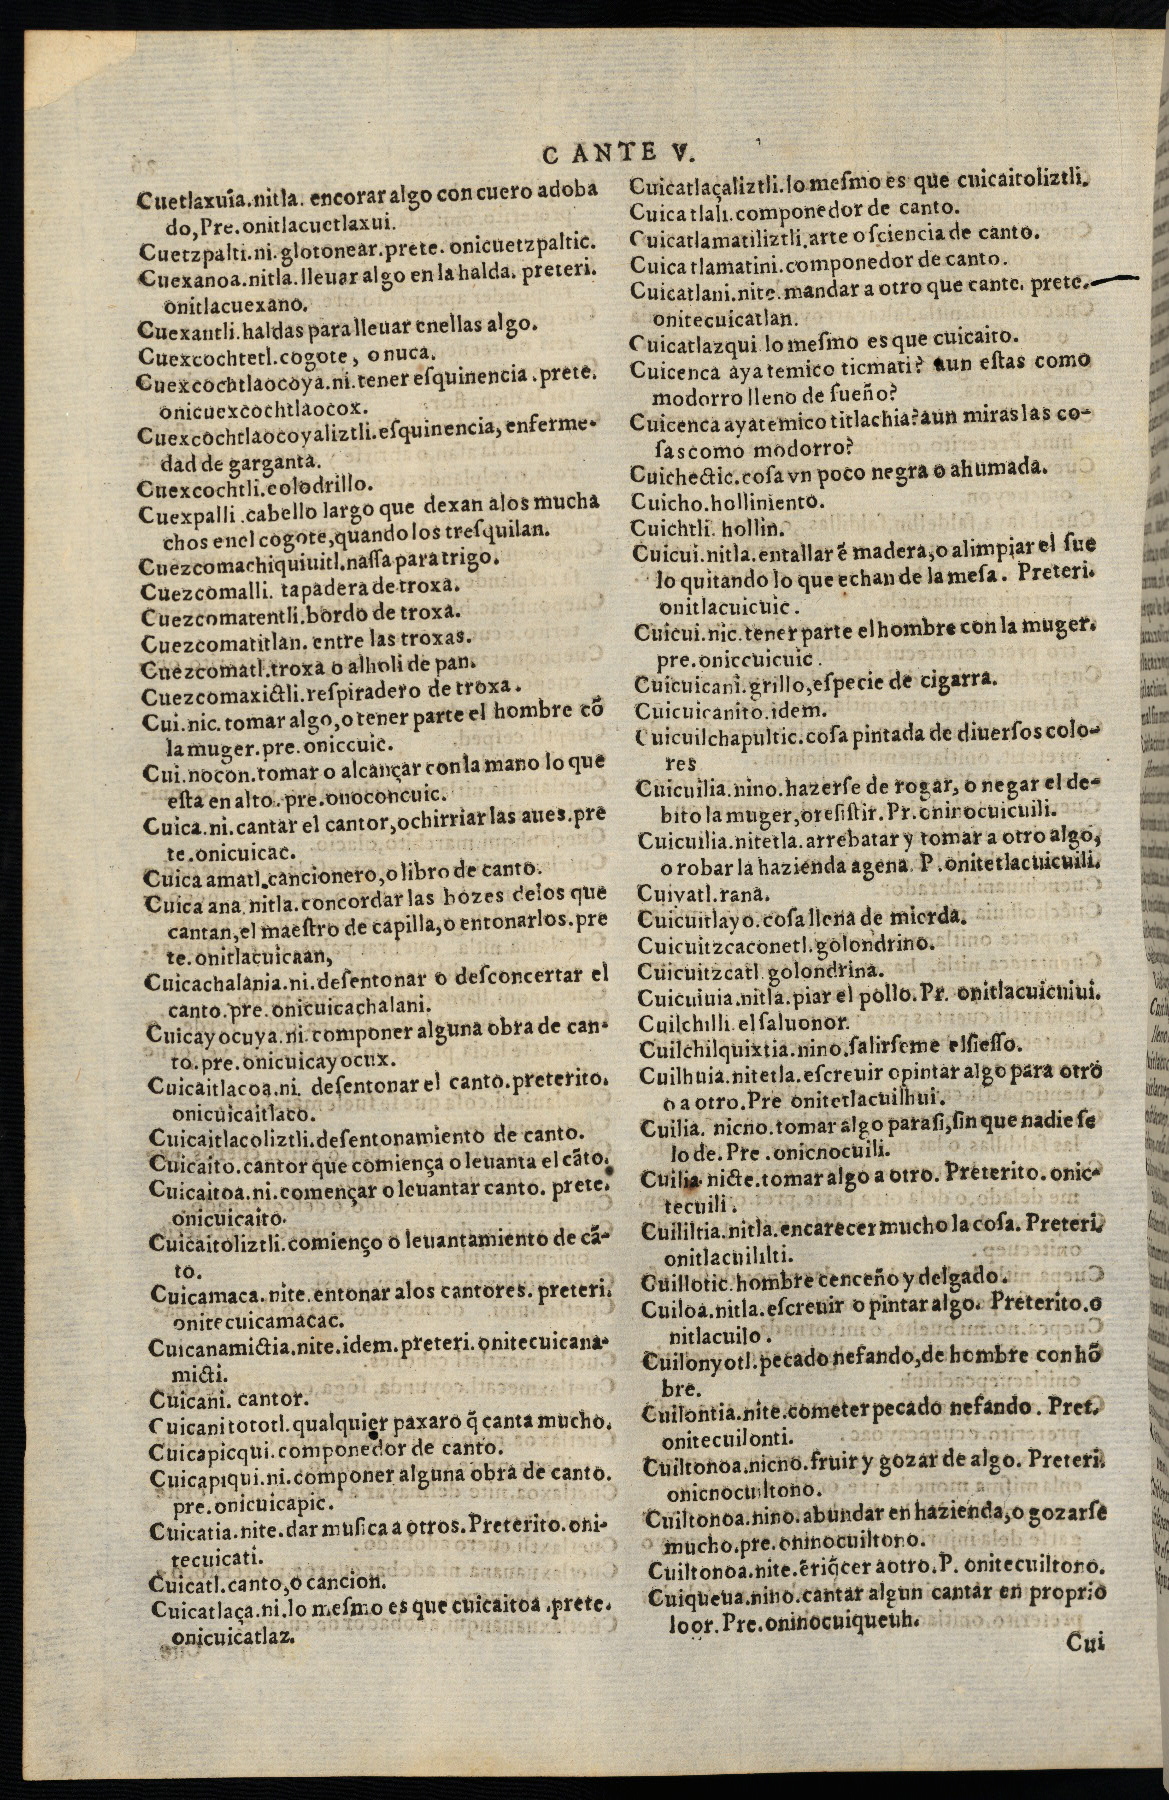 C ANTE V.
Cuetlaxuia.nitla. encorar algo con cuero adoba
do, Pre.onitlacuetlaxui.
Cuetzpalti.ni.glotonear.prete. onicuetzpaltic.
Cuexanoa.nitla.lleuar algo en la halda. preteri.
onitlacuexano.
Cuexantli.haldas para lleuar enellas algo.
Cuexcochtetl.cogote, o nuca.
Cuexcochtlaocoya.ni.tener eſquinencia .prete.
onicuexcochtlaocox.
Cuexcochtlaocoyaliztli.eſquinencia, enferme-
dad de garganta.
Cuexcochtli.colodrillo.
Cuexpalli .cabello largo que dexan alos mucha
chos enel cogote,quando los treſquilan.
Cuezcomachiquiuitl.naſſa para trigo.
Cuezcomalli. tapadera de troxa.
Cuezcomatentli.bordo de troxa.
Cuezcomatitlan. entre las troxas.
Cuezcomatl.troxa o alholi de pan.
Cuezcomaxictli.reſpiradero de troxa.
Cui.nic.tomar algo,o tener parte el hombre cõ
la muger.pre.oniccuic.
Cui.nocon.tomar o alcançar con la mano lo que
eſta en alto. pre.onoconcuic.
Cuica.ni.cantar el cantor,o chirriar las aues.pre
te.onicuicac.
Cuica amatl.cancionero,o libro de canto.
Cuica ana. nitla.concordar las bozes delos que
cantan,el maeſtro de capilla,o entonarlos.pre
te.onitlacuicaan,
Cuicachalania.ni.deſentonar o deſconcertar el
canto.pre.onicuicachalani.
Cuicayocuya.ni.componer alguna obra de can-
to.pre.onicuicayocux.
Cuicaitlacoa.ni. deſentonar el canto.preterito.
onicuicaitlaco.
Cuicaitlacoliztli.deſentonamiento de canto.
Cuicaito.cantor que comiença o leuanta el cãto.
Cuicaitoa.ni.començar o leuantar canto. prete.
onicuicaito.
Cuicaitoliztli.comienço o leuantamiento de cã-
to.
Cuicamaca.nite.entonar alos cantores. preteri.
onitecuicamacac.
Cuicanamictia.nite.idem.preteri.onitecuicana-
micti.
Cuicani. cantor.
Cuicanitototl.qualquier paxaro q̃ canta mucho.
Cuicapicqui.componedor de canto.
Cuicapiqui.ni.componer alguna obra de canto.
pre.onicuicapic.
Cuicatia.nite.dar muſica a otros.Preterito.oni-
tecuicati.
Cuicatl.canto,o cancion.
Cuicatlaça.ni.lo meſmo es que cuicaitoa .prete.
onicuicatlaz.
Cuicatlaçaliztli.lo meſmo es que cuicaitoliztli.
Cuicatlali.componedor de canto.
Cuicatlamatiliztli.arte o ſciencia de canto.
Cuicatlamatini.componedor de canto.
Cuicatlani.nite.mandar a otro que cante. prete.
onitecuicatlan.
Cuicatlazqui lo meſmo es que cuicaito.
Cuicenca aya temico ticmati? aun eſtas como
modorro lleno de ſueño?
Cuicenca ayatemico titlachia?aun miras las co-
ſas como modorro?
Cuichectic.coſa vn poco negra o ahumada.
Cuicho.holliniento.
Cuichtli. hollin.
Cuicui.nitla.entallar ẽ madera,o alimpiar el ſue
lo quitando lo que echan de la meſa. Preteri.
onitlacuicuic.
Cuicui.nic.tener parte el hombre con la muger.
pre.oniccuicuic.
Cuicuicani.grillo,eſpecie de cigarra.
Cuicuicanito.idem.
Cuicuilchapultic.coſa pintada de diuerſos colo-
res
Cuicuilia.nino.hazerſe de rogar, o negar el de-
bito la muger,o reſiſtir.Pr.oninocuicuili.
Cuicuilia.nitetla.arrebatar y tomar a otro algo,
o robar la hazienda agena. P.onitetlacuicuili.
Cuiyatl.rana.
Cuicuitlayo.coſa llena de mierda.
Cuicuitzcaconetl.golondrino.
Cuicuitzcatl.golondrina.
Cuicuiuia.nitla.piar el pollo.Pr. onitlacuicuiui.
Cuilchilli.el ſaluonor.
Cuilchilquixtia.nino.ſalirſeme el ſieſſo.
Cuilhuia.nitetla.eſcreuir o pintar algo para otro
o a otro.Pre onitetlacuilhui.
Cuilia. nicno.tomar algo para ſi,ſin que nadie ſe
lo de.Pre.onicnocuili.
Cuilia nicte.tomar algo a otro. Preterito. onic-
tecuili.
Cuililtia.nitla.encarecer mucho la coſa. Preteri.
onitlacuililti.
Cuillotic.hombre cenceño y delgado.
Cuiloa.nitla.eſcreuir o pintar algo. Preterito.o
nitlacuilo.
Cuilonyotl.pecado nefando,de hombre con hõ
bre.
Cuilontia.nite.cometer pecado nefando. Pret.
onitecuilonti.
Cuiltonoa.nicno.fruir y gozar de algo. Preteri.
onicnocuiltono.
Cuiltonoa.nino.abundar en hazienda,o gozarſe
mucho.pre.oninocuiltono.
Cuiltonoa.nite.ẽriq̃cer a otro.P. onitecuiltono.
Cuiqueua.nino.cantar algun cantar en proprio
loor.Pre.oninocuiqueuh.
Cui